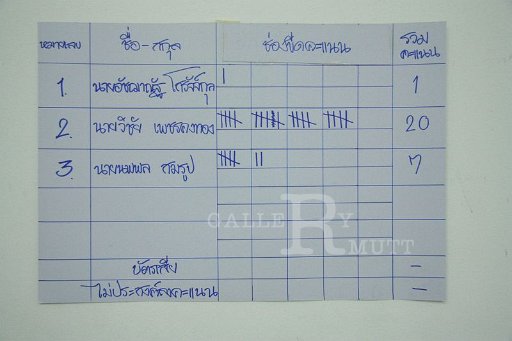 หมายเลข ชื่อ-สกุล ช่องขีดคะแนน รวมคะแนน
1. 1
2. นายวิชัย เพชรทองทอง 20
3. นายนนพพล สมรูป 7
บัตรเสีย -
ไม่ประสงค์ลงคะแนน -
GALLERY
RMUTT